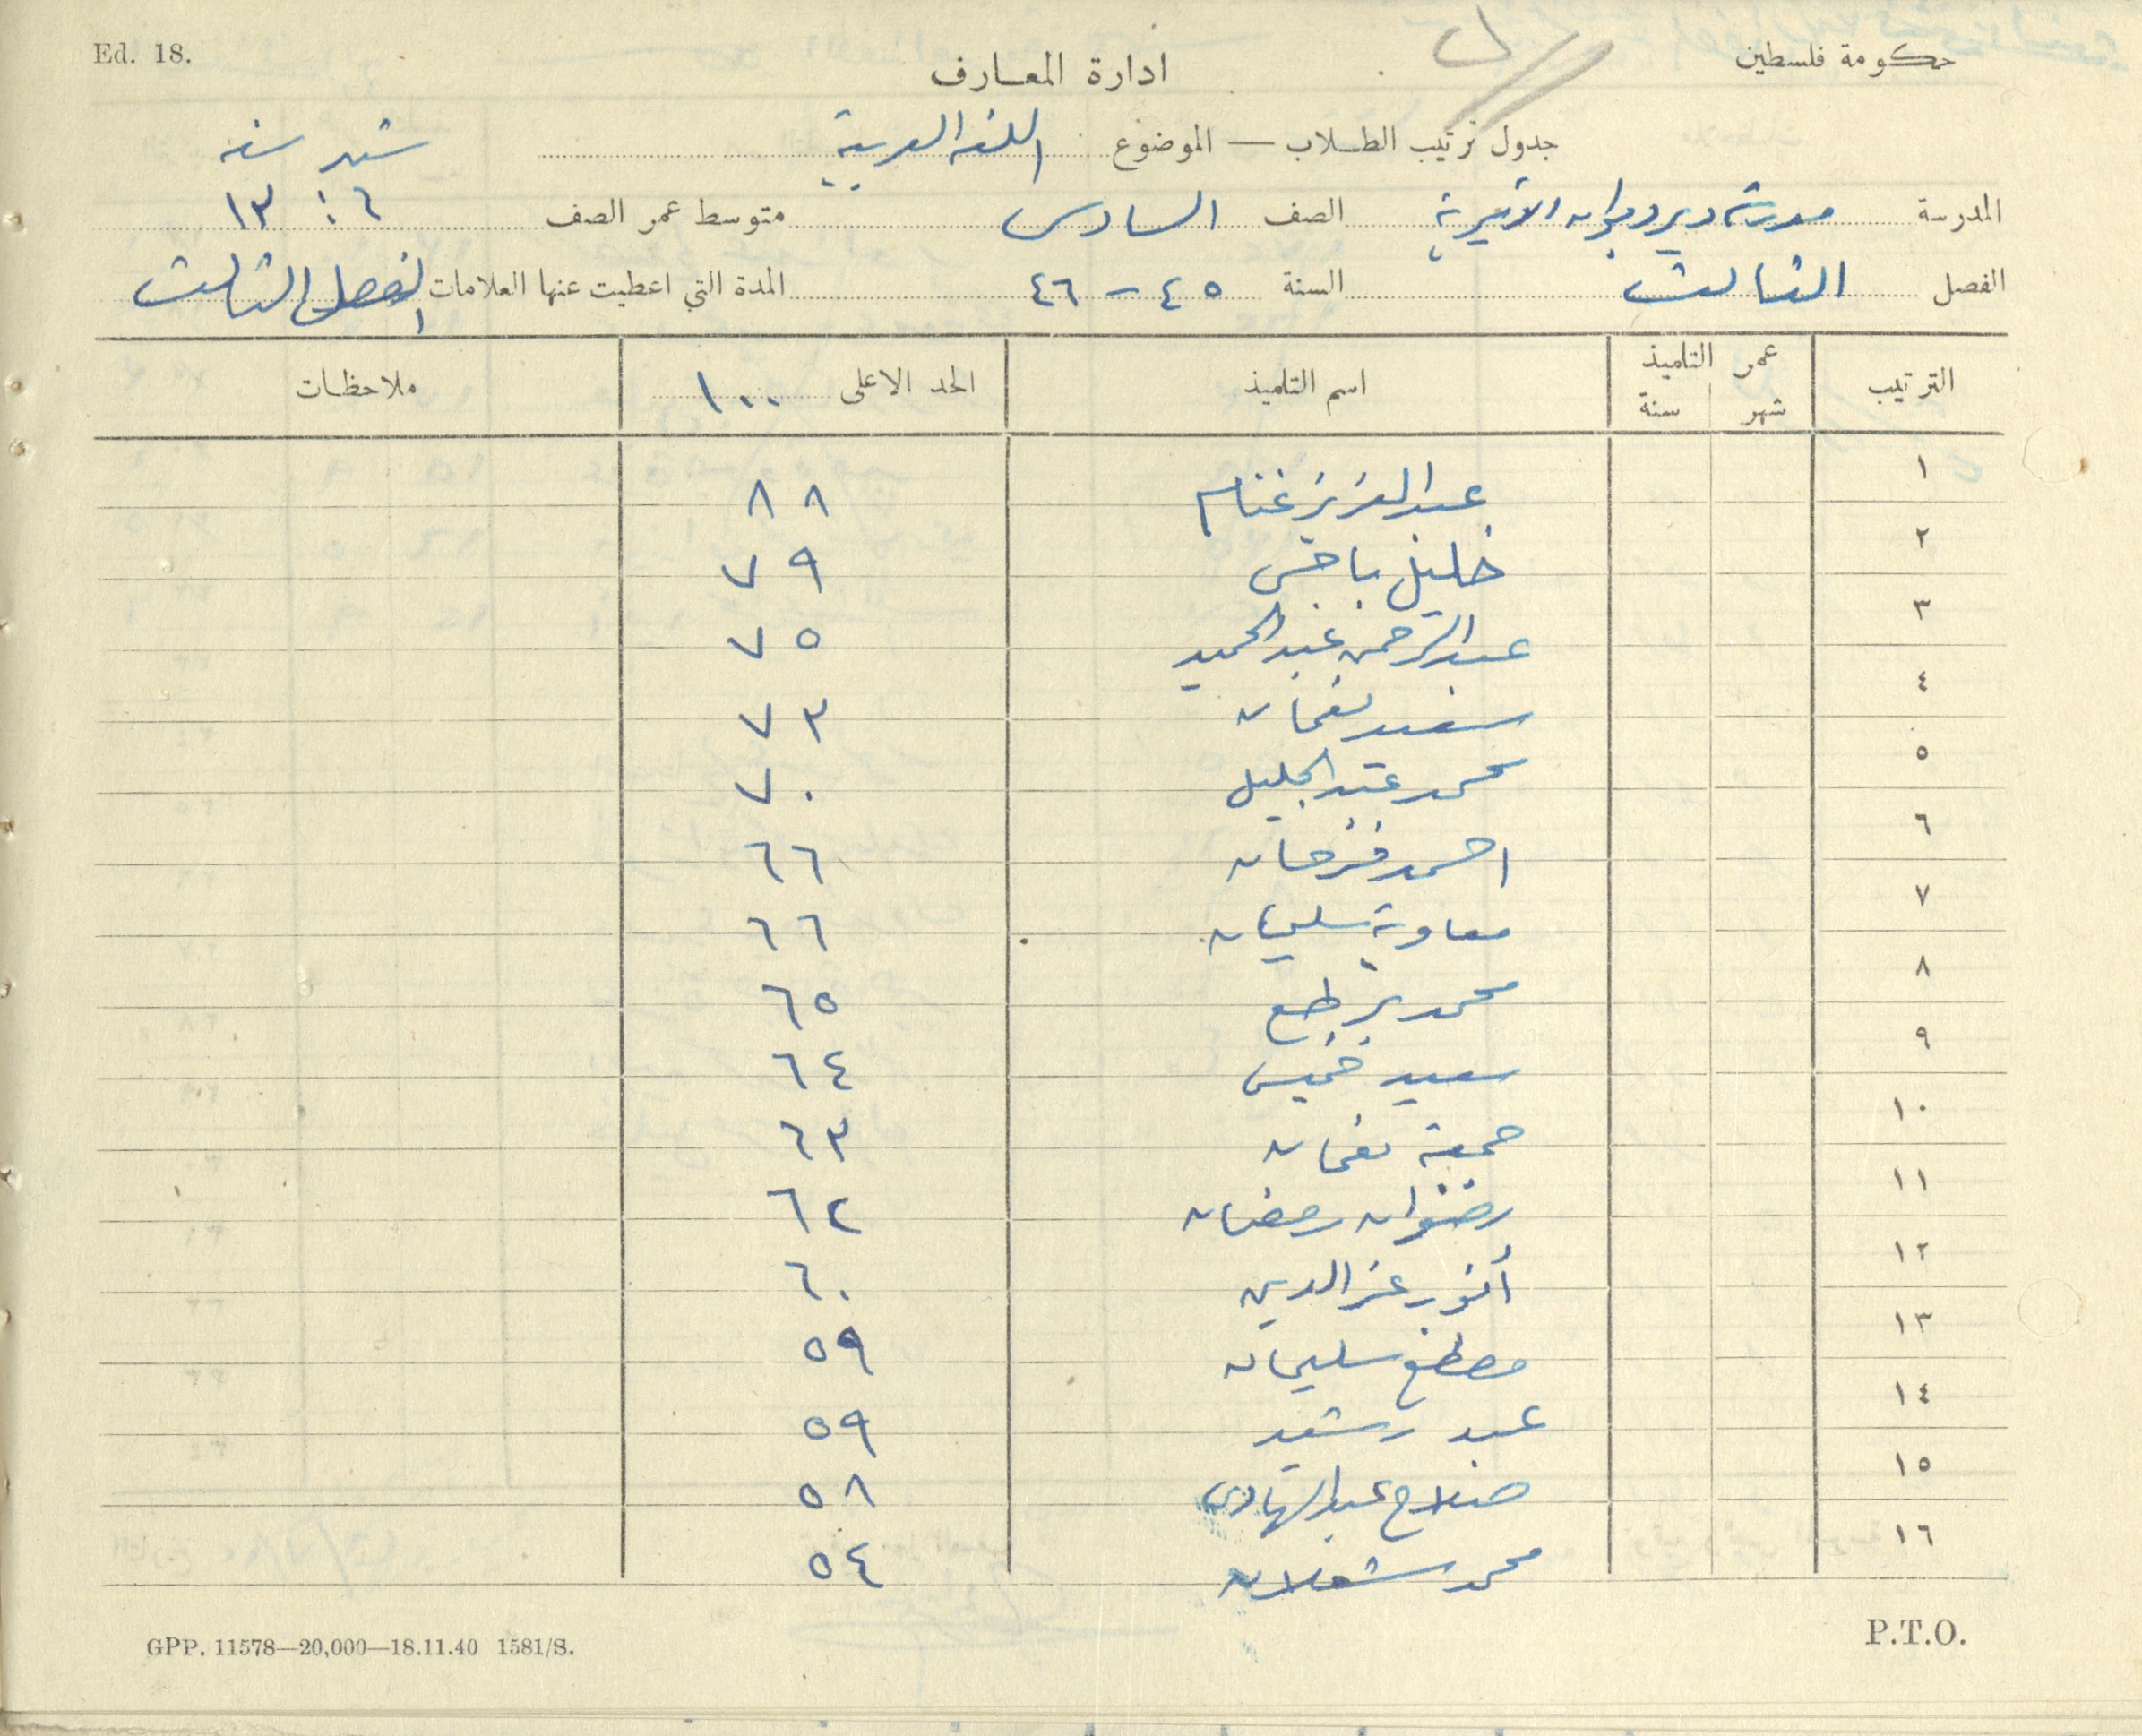 Ed. 18.
حكومة فلسطين
ادارة المعارف
جدول ترتيب الطلاب — الموضوع اللغة العربية
شهر سنة
المدرسة مدرسة دير دبوان الأميرية الصف السادس متوسط عمر الصف ٦ : ١٣
الفصل الثالث السنة ٤٥ – ٤٦ المدة التي اعطيت عنها العلامات الفصل الثالث
الترتيب عمر التلميذ شهر سنة اسم التلميذ الحد الاعلى ١٠٠ ملاحظات
١ عبد العزيز غنام ٨٨
٢ خليل ٧٩
٣ عبد الرحمن عبد الحميد ٧٥
٤ سعيد نعمان ٧٣
٥ محمد عبد الجليل ٧٠
٦ احمد فرحان ٦٦
٧ معاوية سليمان ٦٦
٨ محمد ٦٥
٩ سعيد خميس ٦٤
١٠ جمعة نعمان ٦٣
١١ رضوان رمضان ٦٢
١٢ أنور عز الدين ٦٠
١٣ مصطفى سليمان ٥٩
١٤ عبد رشيد ٥٩
١٥ صلاح عبد الهادي ٥٨
١٦ محمد شعلان ٥٤
GPP. 11578—20,000—18.11.40 1581/S.
P.T.O.